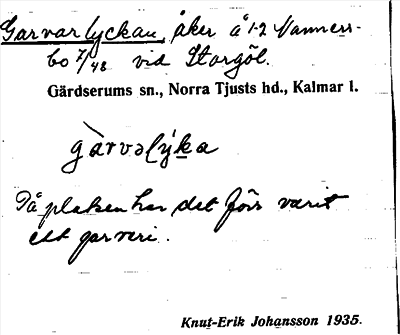 Garvarlyckan, åker å 1-2 Vanners-
bo 7/48 vid Storgöl.
Gärdserums sn., Norra Tjusts hd., Kalmar l.
gàrvəlýka
På platsen har det förr varit
ett garveri.
Knut-Erik Johansson 1935.